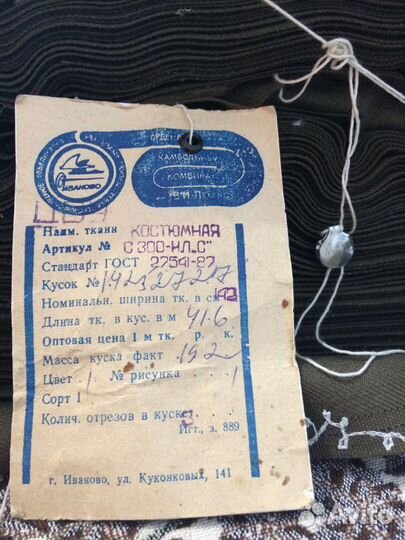 ИВАНОВО
ОРДЕНА
КАМВОЛЬНЫЙ
КОМБИНАТ
Наим. ткани КОСТЮМНАЯ
Артикул № С 300-ИЛ„С"
Стандарт ГОСТ 27541-87
Кусок №
Номинальн. ширина тк. в см 142
Длина тк. в кус. в м 41.6
Оптовая цена 1 м тк. р. к.
Масса куска факт 19.2
Цвет 1 № рисунка 1
Сорт 1
Колич. отрезов в куске 3
Игт., з. 889
г. Иваново, ул. Куконковых, 141
Avito